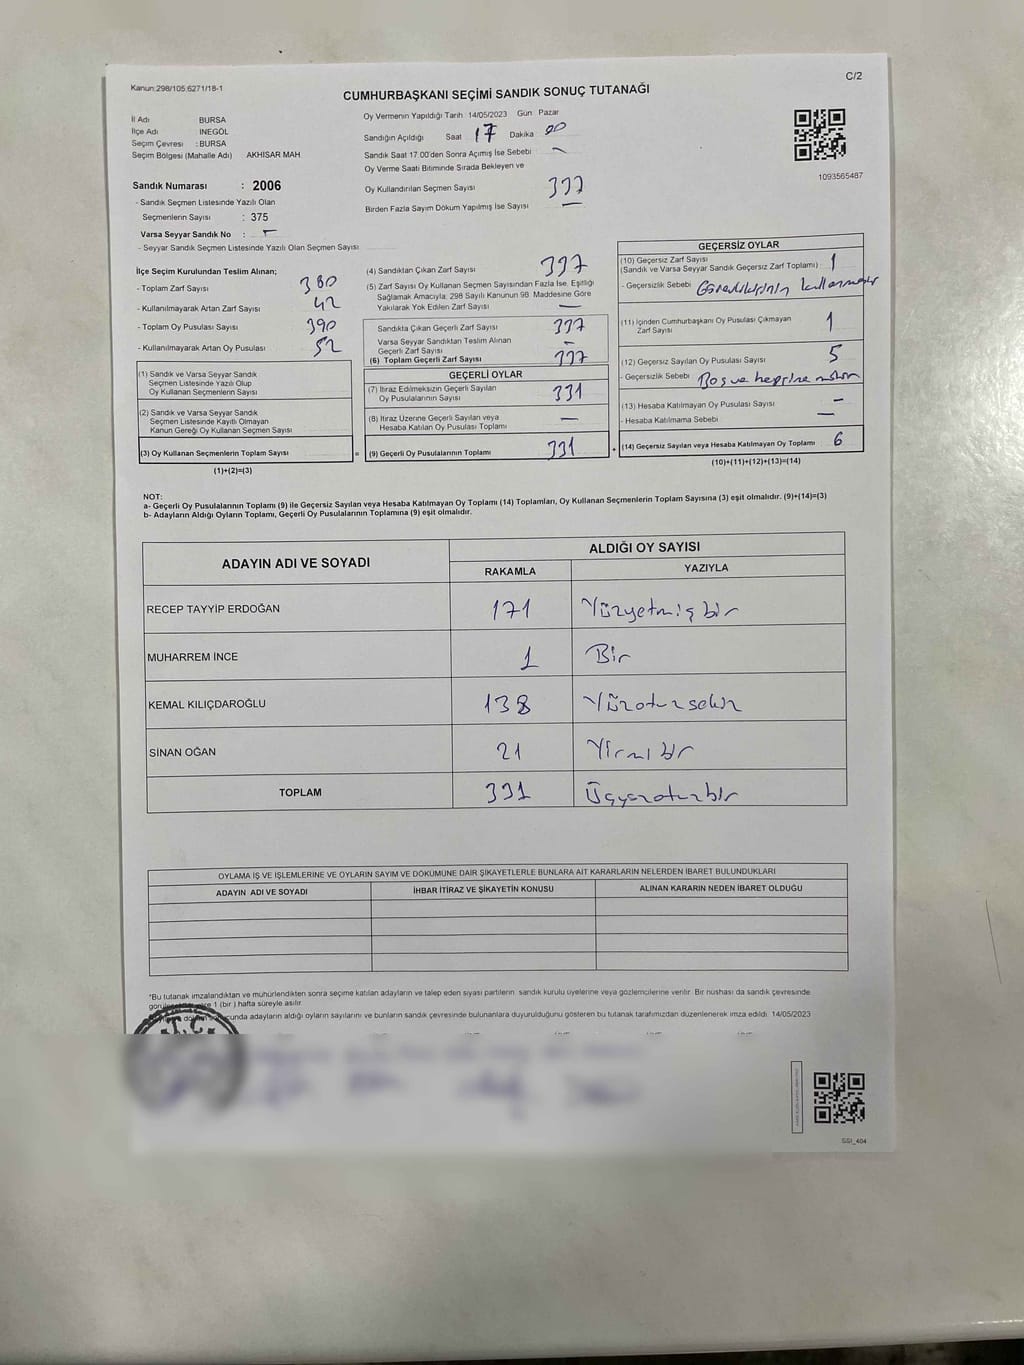 C/2
Kanun:298/105.6271/18-1
CUMHURBAŞKANI SEÇİMİ SANDIK SONUÇ TUTANAĞI
İl Adı BURSA
İlçe Adı İNEGÖL
Seçim Çevresi :BURSA
Seçim Bölgesi (Mahalle Adı) AKHİSAR MAH
Sandık Numarası : 2006
- Sandık Seçmen Listesinde Yazılı Olan
Seçmenlerin Sayısı : 375
Varsa Seyyar Sandık No : -
- Seyyar Sandık Seçmen Listesinde Yazılı Olan Seçmen Sayısı
Oy Vermenin Yapıldığı Tarih 14/05/2023 Gün Pazar
Sandığın Açıldığı Saat 17 Dakika 00
Sandık Saat 17.00'den Sonra Açımış İse Sebebi -
Oy Verme Saati Bitiminde Sırada Bekleyen ve
Oy Kullandırılan Seçmen Sayısı 337
Birden Fazla Sayım Döküm Yapılmış İse Sayısı -
1093565487
İlçe Seçim Kurulundan Teslim Alınan;
- Toplam Zarf Sayısı 380
- Kullanılmayarak Artan Zarf Sayısı 42
- Toplam Oy Pusulası Sayısı 390
- Kullanılmayarak Artan Oy Pusulası 52
(1) Sandık ve Varsa Seyyar Sandık
Seçmen Listesinde Yazılı Olup
Oy Kullanan Seçmenlerin Sayısı
(2) Sandık ve Varsa Seyyar Sandık
Seçmen Listesinde Kayıtlı Olmayan
Kanun Gereği Oy Kullanan Seçmen Sayısı
(3) Oy Kullanan Seçmenlerin Toplam Sayısı =
(1)+(2)=(3)
(4) Sandıktan Çıkan Zarf Sayısı 337
(5) Zarf Sayısı Oy Kullanan Seçmen Sayısından Fazla İse, Eşitliği
Sağlamak Amacıyla; 298 Sayılı Kanunun 98. Maddesine Göre
Yakılarak Yok Edilen Zarf Sayısı -
Sandıkta Çıkan Geçerli Zarf Sayısı 337
Varsa Seyyar Sandıktan Teslim Alınan
Geçerli Zarf Sayısı -
(6) Toplam Geçerli Zarf Sayısı 337
GEÇERLİ OYLAR
(7) İtiraz Edilmeksizin Geçerli Sayılan
Oy Pusulalarının Sayısı 331
(8) İtiraz Üzerine Geçerli Sayılan veya
Hesaba Katılan Oy Pusulası Toplamı -
(9) Geçerli Oy Pusulalarının Toplamı 331
GEÇERSİZ OYLAR
(10) Geçersiz Zarf Sayısı
(Sandık ve Varsa Seyyar Sandık Geçersiz Zarf Toplamı) 1
- Geçersizlik Sebebi
(11) İçinden Cumhurbaşkanı Oy Pusulası Çıkmayan
Zarf Sayısı 1
(12) Geçersiz Sayılan Oy Pusulası Sayısı 5
- Geçersizlik Sebebi Boş ve hepsine
(13) Hesaba Katılmayan Oy Pusulası Sayısı -
- Hesaba Katılmama Sebebi -
(14) Geçersiz Sayılan veya Hesaba Katılmayan Oy Toplamı 6
(10)+(11)+(12)+(13)=(14)
NOT:
a- Geçerli Oy Pusulalarının Toplamı (9) ile Geçersiz Sayılan veya Hesaba Katılmayan Oy Toplamı (14) Toplamları, Oy Kullanan Seçmenlerin Toplam Sayısına (3) eşit olmalıdır. (9)+(14)=(3)
b- Adayların Aldığı Oyların Toplamı, Geçerli Oy Pusulalarının Toplamına (9) eşit olmalıdır.
ADAYIN ADI VE SOYADI
ALDIĞI OY SAYISI
RAKAMLA YAZIYLA
RECEP TAYYİP ERDOĞAN 171 Yüzyetmiş bir
MUHARREM İNCE 1 Bir
KEMAL KILIÇDAROĞLU 138 Yüzotuz sekiz
SİNAN OĞAN 21 Yirmi bir
TOPLAM 331 Üçyüzotuzbir
OYLAMA İŞ VE İŞLEMLERİNE VE OYLARIN SAYIM VE DÖKÜMÜNE DAİR ŞİKAYETLERLE BUNLARA AİT KARARLARIN NELERDEN İBARET BULUNDUKLARI
ADAYIN ADI VE SOYADI İHBAR İTİRAZ VE ŞİKAYETİN KONUSU ALINAN KARARIN NEDEN İBARET OLDUĞU
*Bu tutanak imzalandıktan ve mühürlendikten sonra seçime katılan adayların ve talep eden siyasi partilerin sandık kurulu üyelerine veya gözlemcilerine verilir. Bir nüshası da sandık çevresinde
1 (bir ) hafta süreyle asılır.
adayların aldığı oyların sayılarını ve bunların sandık çevresinde bulunanlara duyurulduğunu gösteren bu tutanak tarafımızdan düzenlenerek imza edildi. 14/05/2023
T.C.
SSI_404